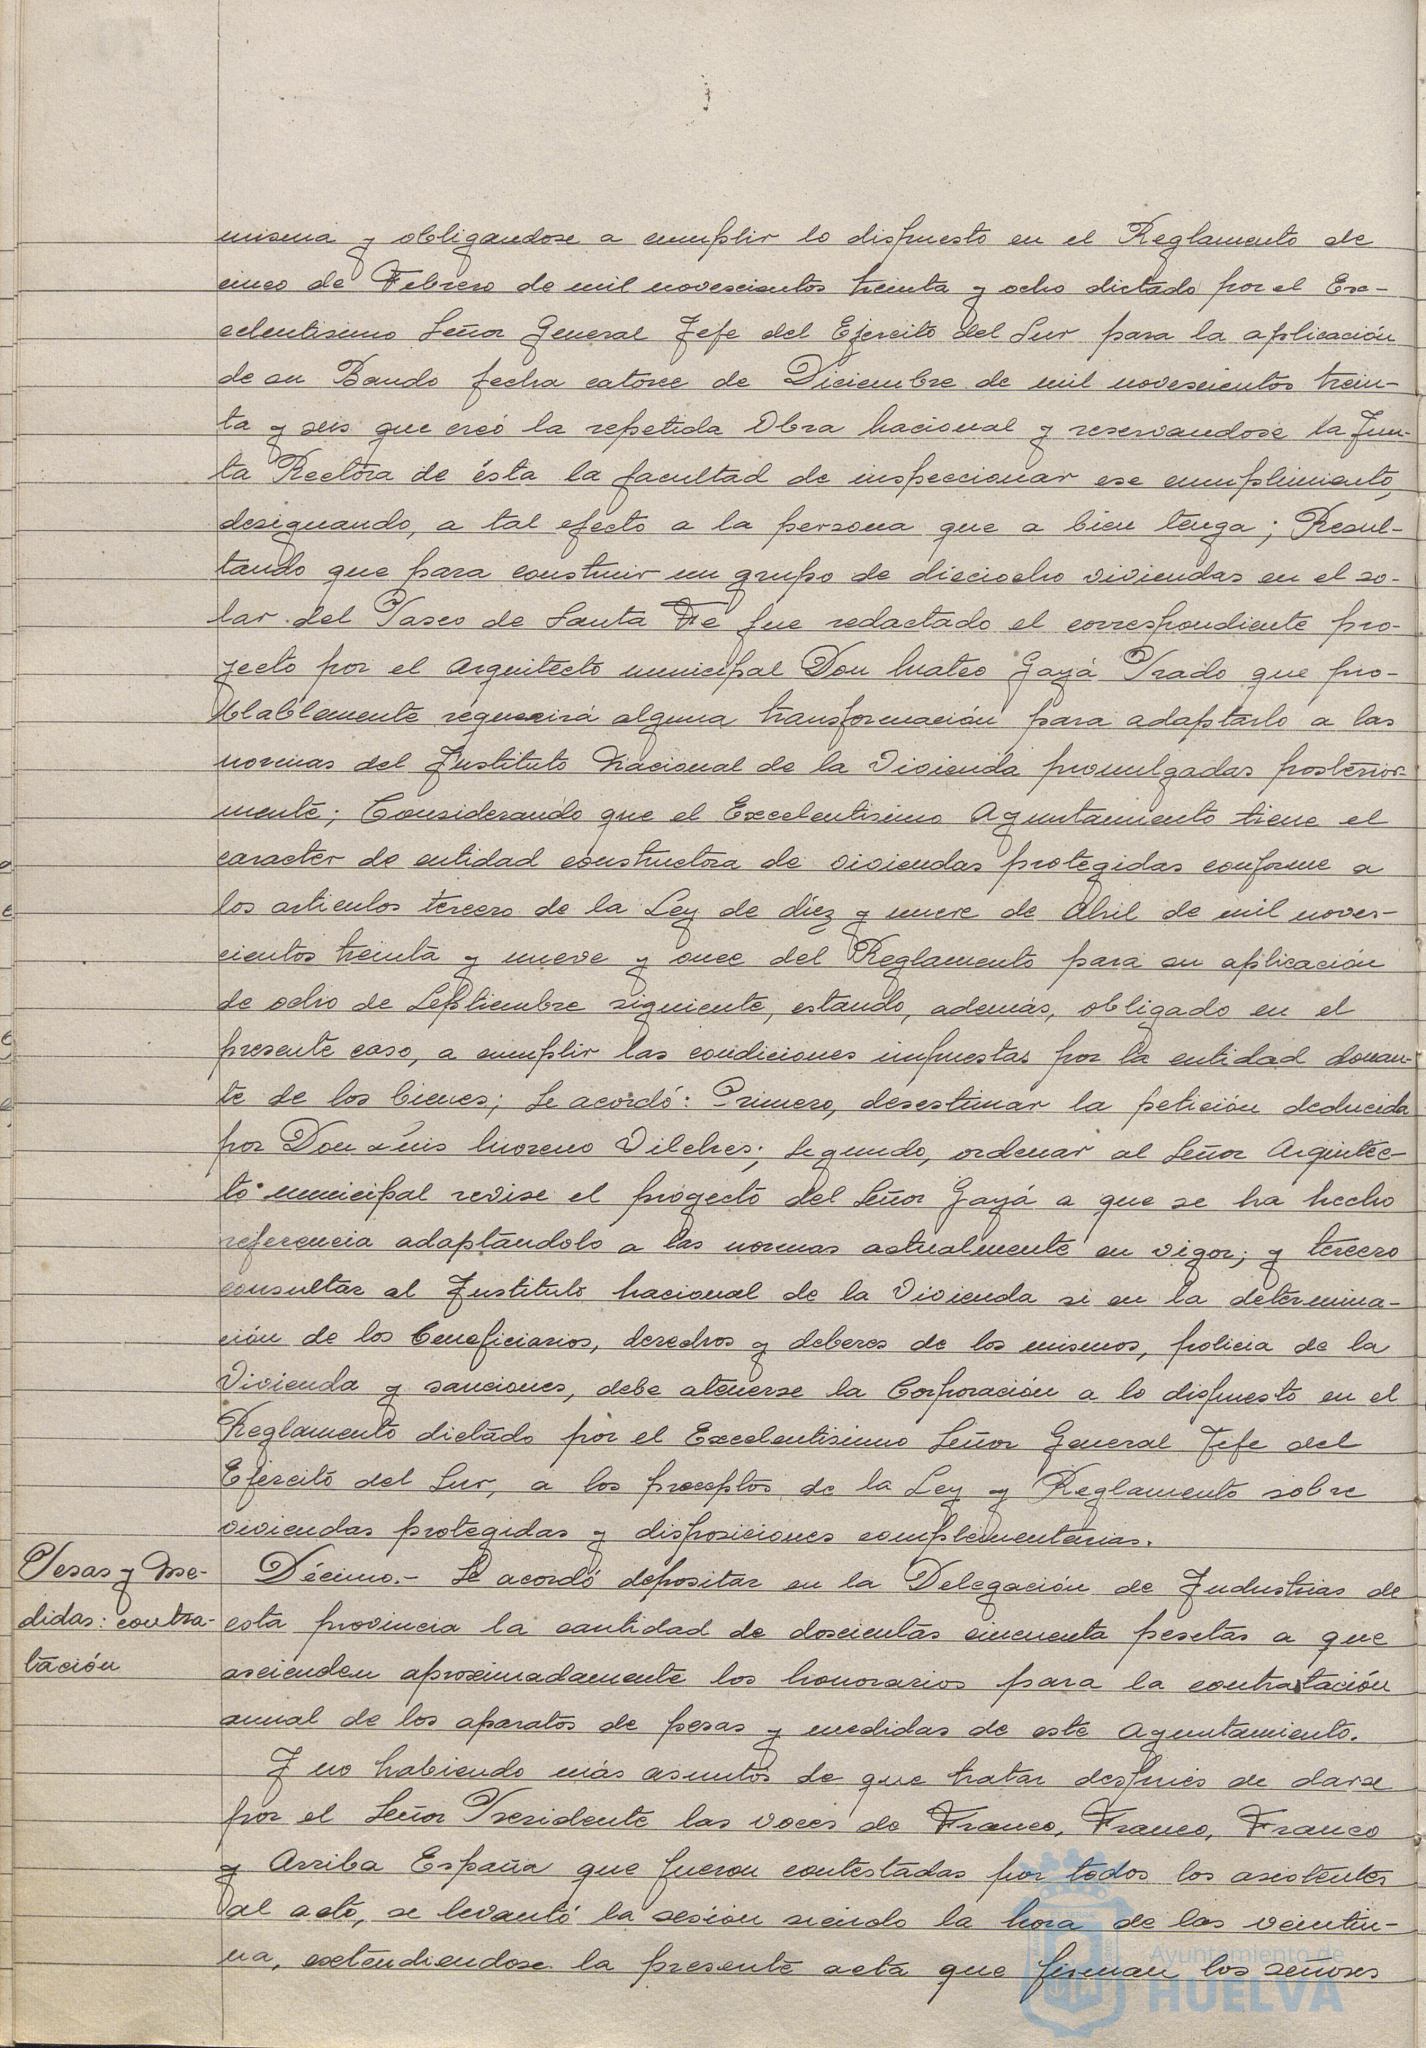 misma y obligandose a cumplir lo dispuesto en el Reglamento de
cinco de Febrero de mil novescientos treinta y ocho dictado por el Exc-
celentisimo Señor General Jefe del Ejercito del Sur para la aplicación
de su Bando fecha catorce de Diciembre de mil novescientos trein-
ta y seis que creó la repetida Obra nacional y reservandose la Jun-
ta Rectora de ésta la facultad de inspeccionar ese cumplimiento,
designando, a tal efecto a la persona que a bien tenga; Resul-
tando que para construir un grupo de dieciocho viviendas en el so-
lar del Paseo de Santa Fé fue redactado el correspondiente pro-
yecto por el Arquitecto municipal Don Mateo Gayá Prado que pro-
blablemente requerirá alguna transformación para adaptarlo a las
normas del Instituto Nacional de la Vivienda promulgadas posterior-
mente; Considerando que el Excelentisimo Ayuntamiento tiene el
caracter de entidad constructora de viviendas protegidas conforme a
los articulos tercero de la Ley de diez y nueve de Abril de mil noves-
cientos treinta y nueve y once del Reglamento para su aplicación
de ocho de Septiembre siguiente, estando, además, obligado en el
presente caso, a cumplir las condiciones impuestas por la entidad donan-
te de los bienes; Se acordó: Primero, desestimar la petición deducida
por Don Luis Moreno Vilches; Segundo, ordenar al Señor Arquitec-
to municipal revise el proyecto del Señor Gayá a que se ha hecho
referencia adaptándolo a las normas actualmente en vigor; y tercero
consultar al Instituto nacional de la Vivienda si en la determina-
ción de los beneficiarios, derechos y deberes de los mismos, policia de la
Vivienda y sanciones, debe atenerse la Corporación a lo dispuesto en el
Reglamento dictado por el Excelentisimo Señor General Jefe del
Ejercito del Sur, a los preceptos de la Ley y Reglamento sobre
viviendas protegidas y disposiciones complementarias.
Pesas y Me-
didas: contra-
tación
Décimo.- Se acordó depositar en la Delegación de Industrias de
esta provincia la cantidad de doscientas cincuenta pesetas a que
ascienden aproximadamente los honorarios para la contratación
anual de los aparatos de pesas y medidas de este Ayuntamiento.
Y no habiendo más asuntos de que tratar después de darse
por el Señor Presidente las voces de Franco, Franco, Franco
y Arriba España que fueron contestadas por todos los asistentes
al acto, se levantó la sesión siendo la hora de las veintiu-
na, extendiendose la presente acta que firman los señores
Ayuntamiento de
HUELVA